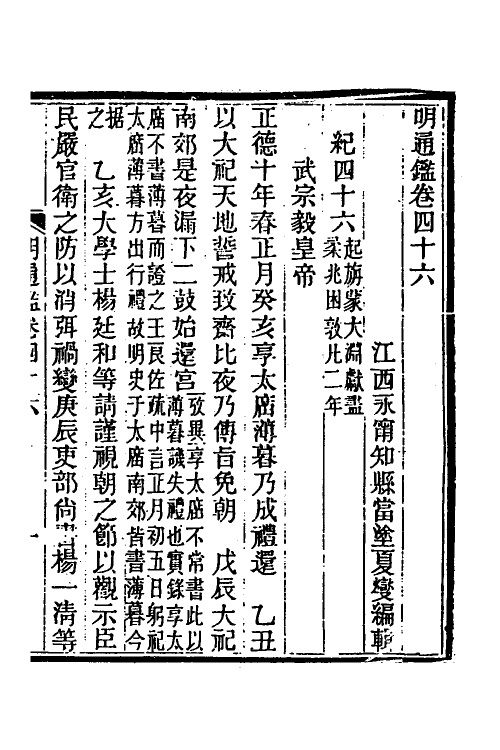 明通鑑卷四十六
江西永甯知縣當塗夏燮編輯
紀四十六起旃蒙大淵獻盡
柔兆困敦凡二年
武宗毅皇帝
正德十年春正月癸亥享太廟薄暮乃成禮還　乙丑
以大祀天地誓戒致齋比夜乃傳旨免朝　戊辰大祀
南郊是夜漏下二鼓始還宮攷異享太廟不常書此以
薄暮譏失禮也實錄享太
廟不書薄暮而證之王良佐疏中言正月初五日躬祀
太廟薄暮方出行禮故明史于太廟南郊皆書薄暮今
据
之　乙亥大學士楊廷和等請謹視朝之節以觀示臣
民嚴官衛之防以消弭禍變庚辰吏部尚書楊一清等
明通鑑卷四十六　一